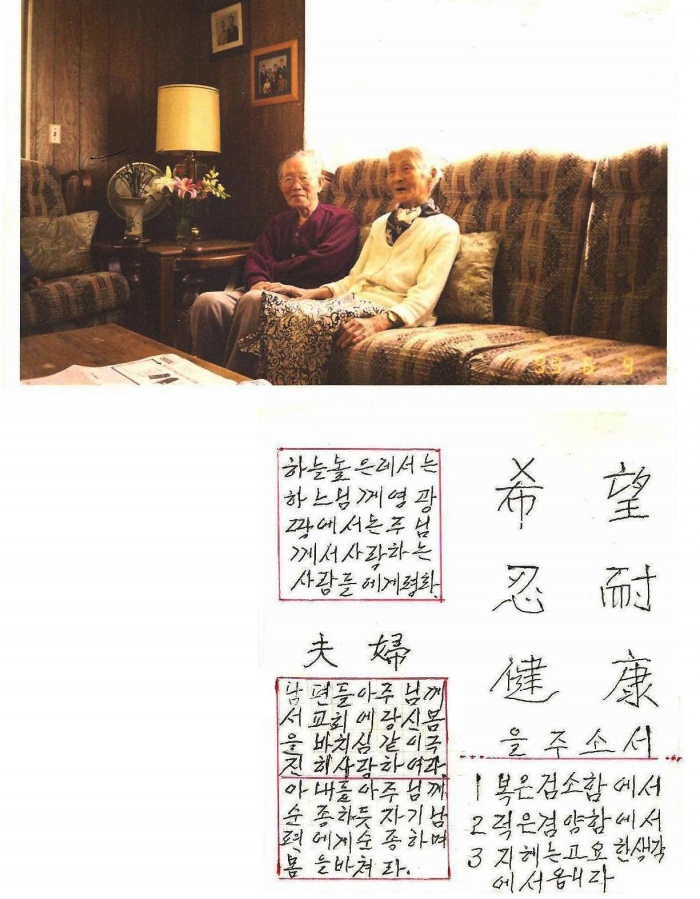 하늘높은데서는
하느님께영광
땅에서는주님
께서사랑하는
사람들에게평화.
夫婦
남편들아주님께
서교회에당신몸
을바치심같이극
진히사랑하여라
아내들아주님께
순종하듯자기남
편에게순종하며
몸을바쳐라.
希望
忍耐
健康
을주소서
1 복은검소함에서
2 덕은겸양함에서
3 지혜는고요한생각
에서옵니다